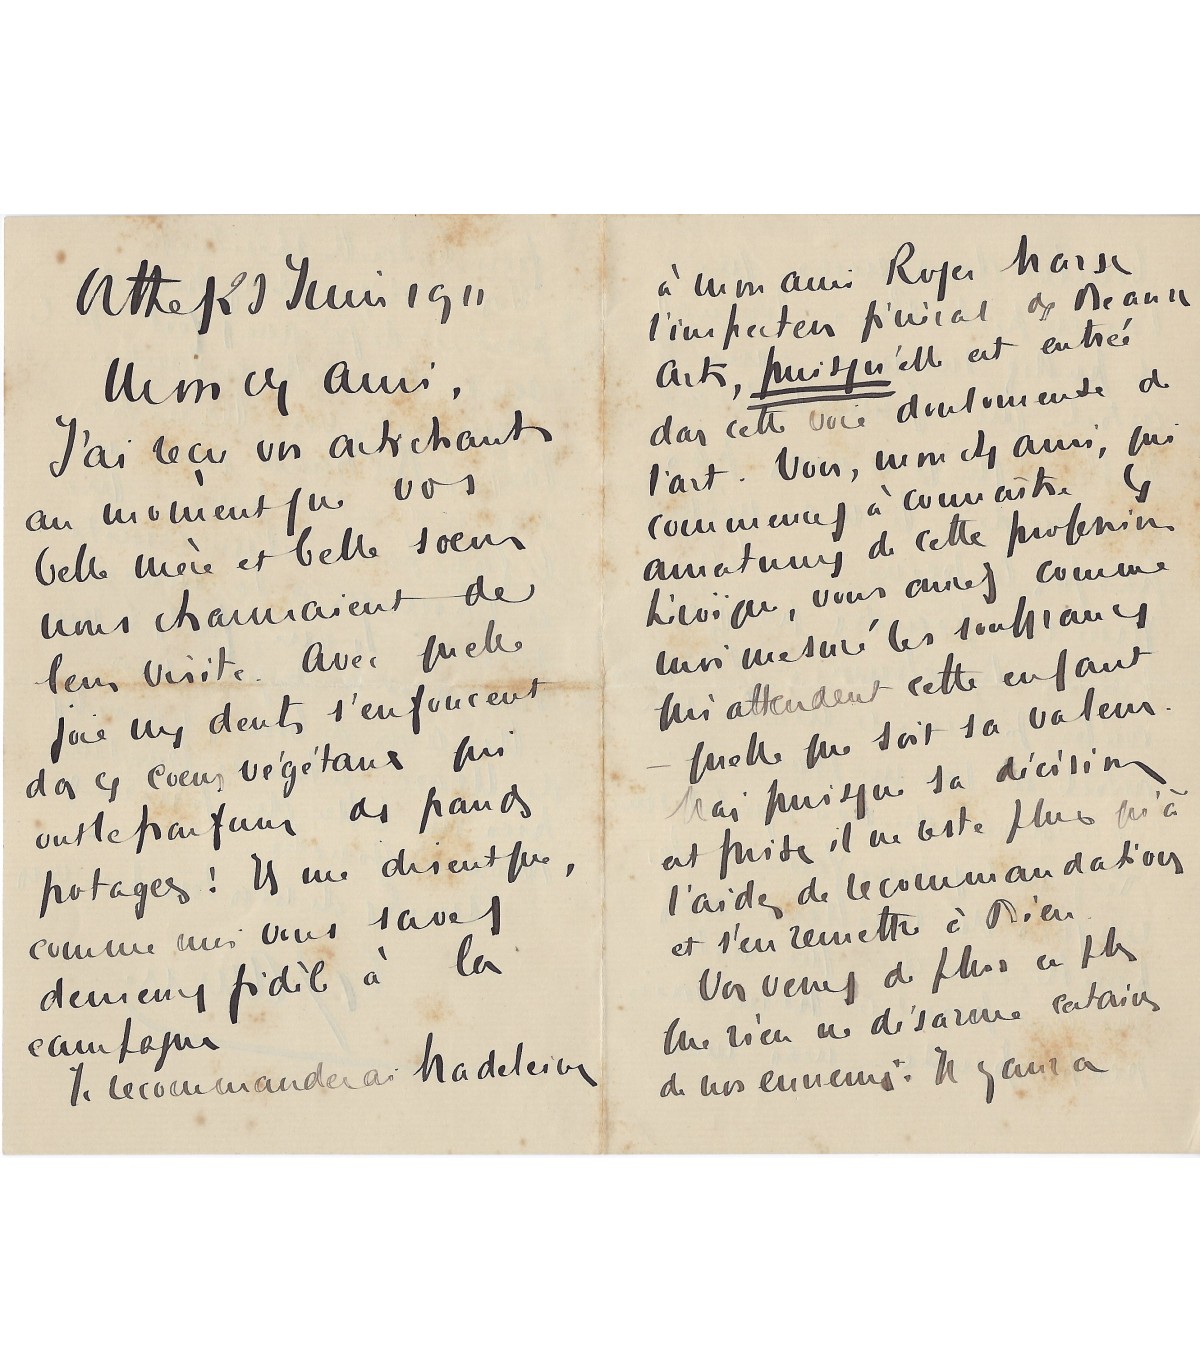 Athef 23 Juin 1911
Mon ch ami,
J'ai reçu vos artichauts
au moment que vos
belle mère et belle soeur
nous charmaient de
leur visite. Avec quelle
joie mes dents s'enfoncent
das ces coeurs végétaux qui
ont le parfum des grands
potagers ! Ils me disent que,
comme moi vous savez
demeurer fidèle à la
campagne
Je recommanderai Madeleine
à mon ami Roger Marx
l'inspecteur général des Beaux
Arts, puisqu'elle est entrée
dans cette voie douloureuse de
l'art. Vous, mon ch ami, qui
commencez à connaître les
amertumes de cette profession
héroïque, vous avez comme
moi mesuré les souffrances
qui attendent cette enfant
– quelle que soit sa valeur.
Mais puisque sa décision
est prise, il ne reste plus qu'à
l'aider de recommandations
et s'en remettre à Dieu.
Vos venez de plus en plus
que rien ne désarme certains
de nos ennemis. Il y aura